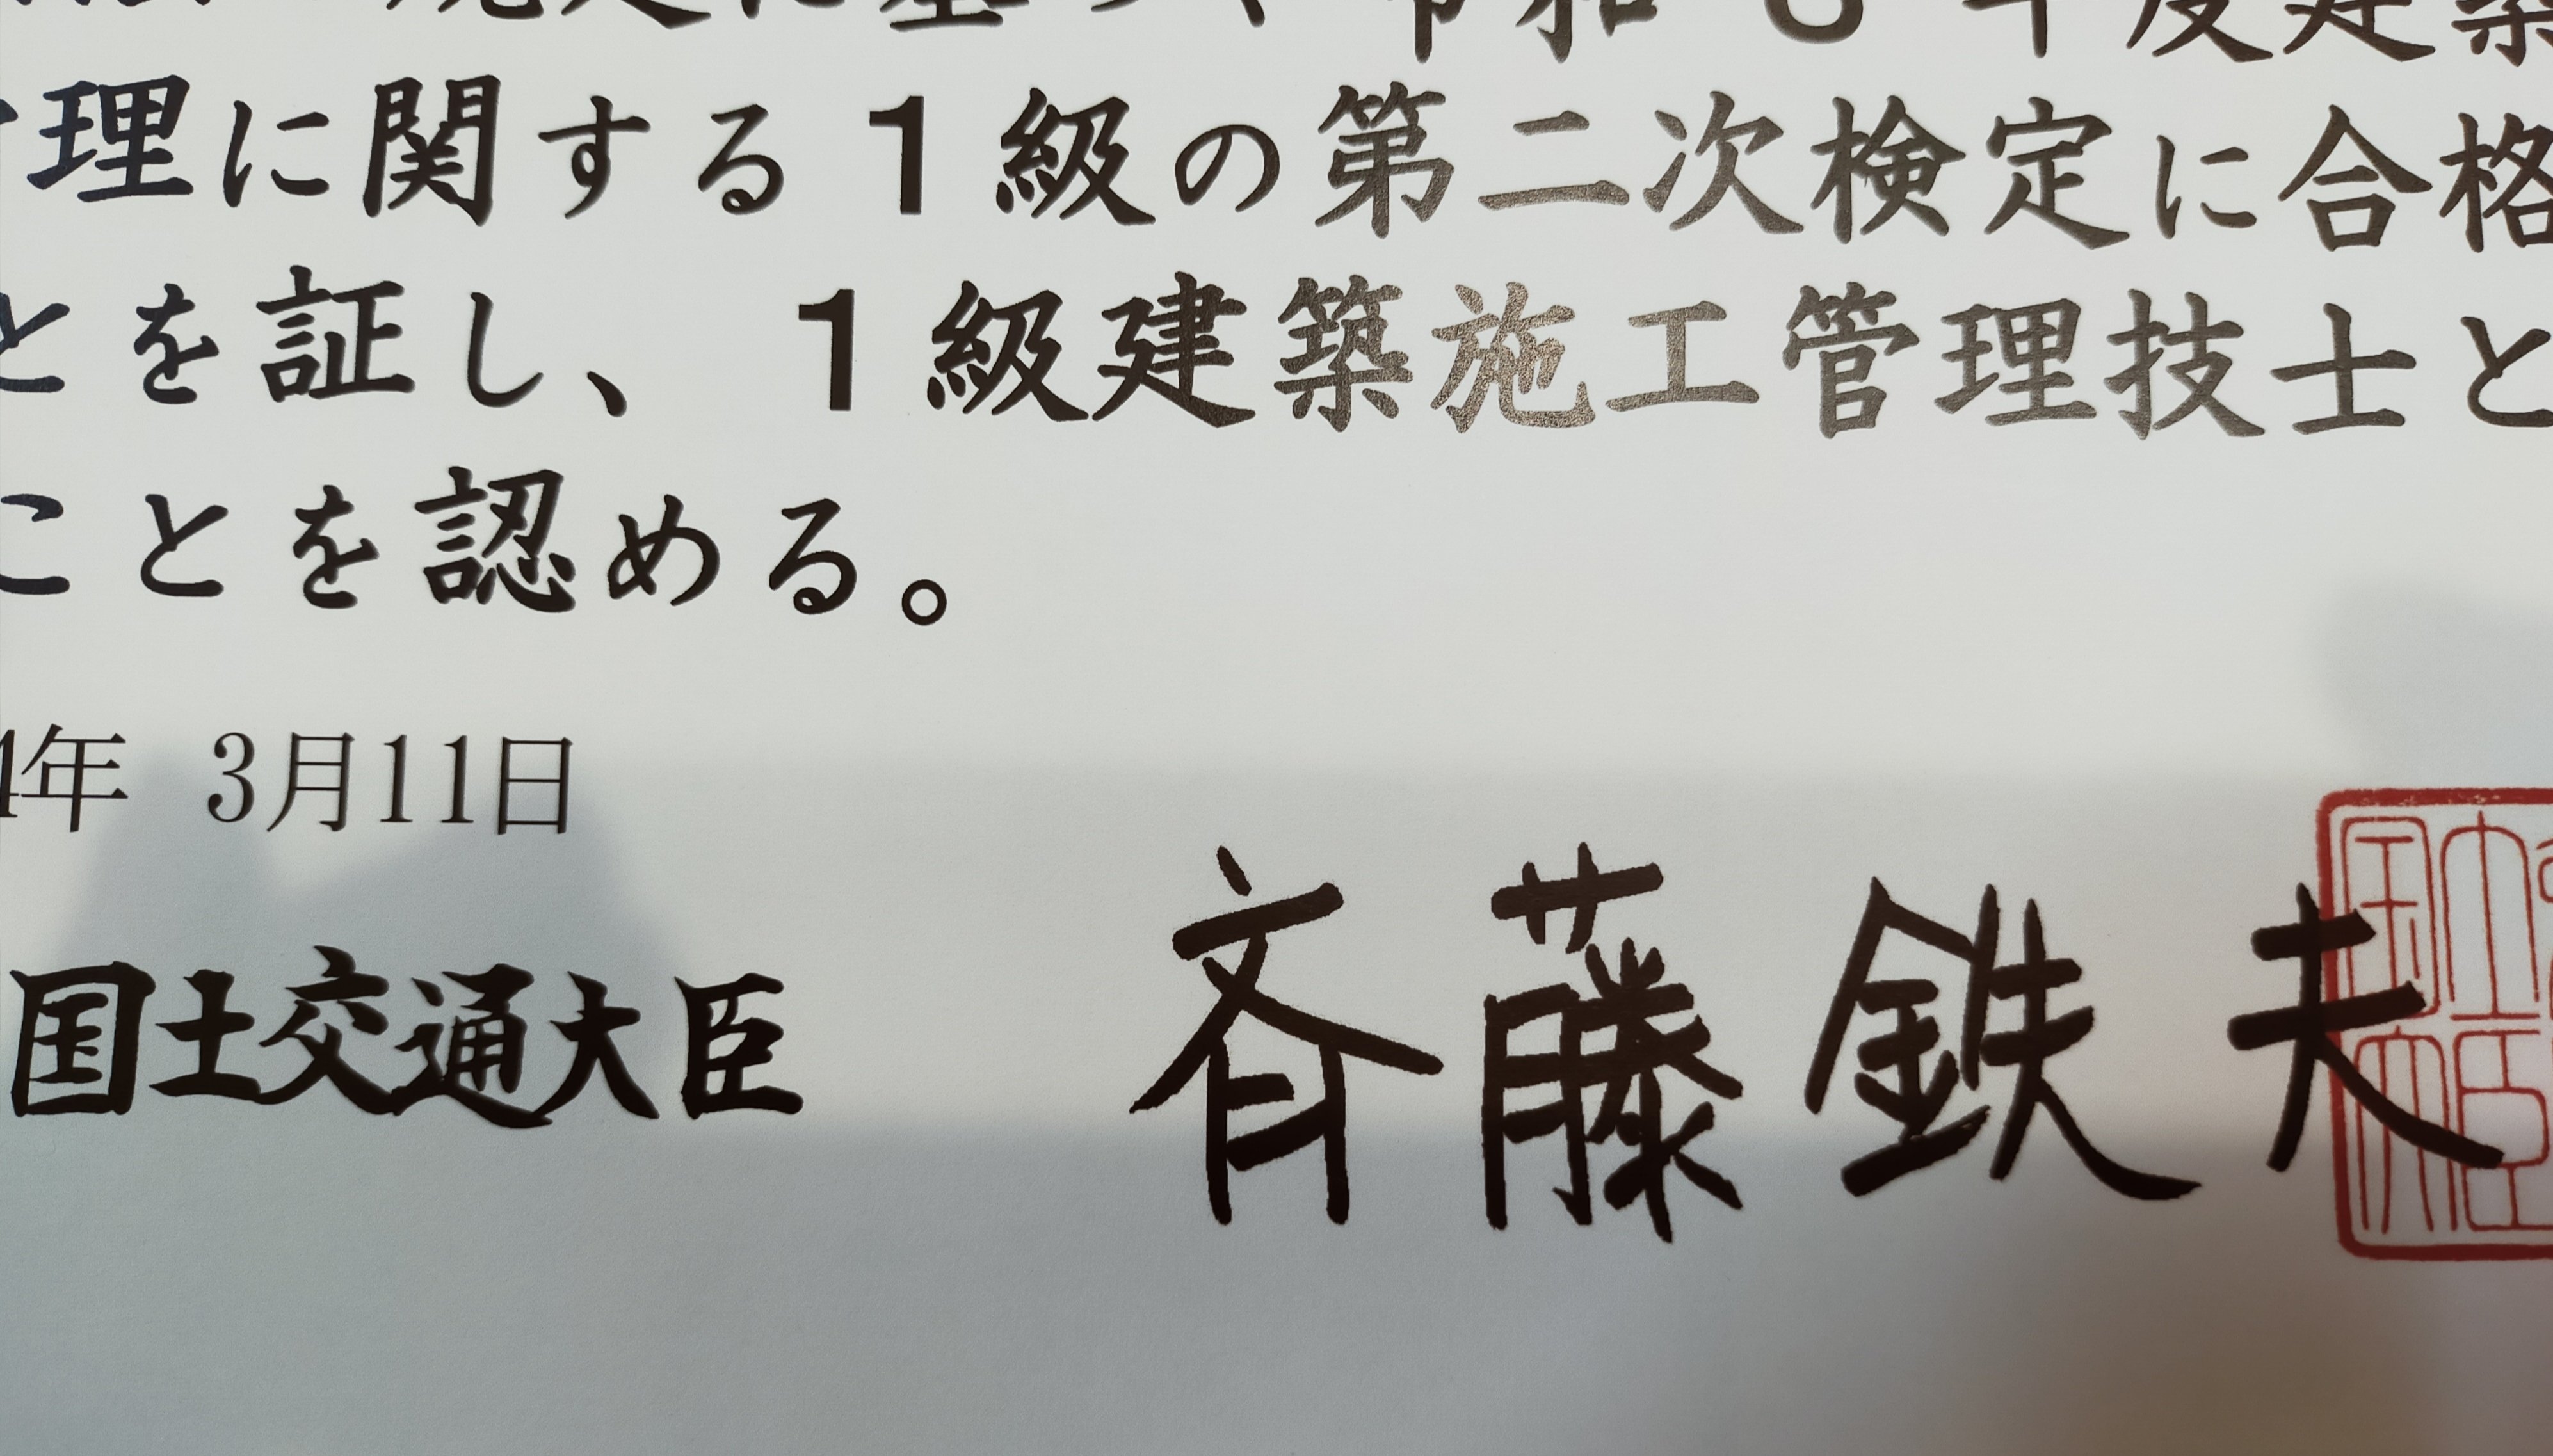 規定に基づく令和5年度建築
理に関する1級の第二次検定に合格
とを証し、1級建築施工管理技士と
ことを認める。
4年 3月11日
国土交通大臣 斉藤鉄夫